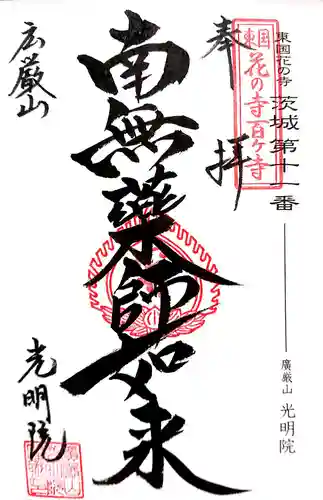 東国花の寺 茨城第十一番
廣厳山 光明院
東国花の寺百ケ寺
奉拝
南無薬師如来
広厳山
光明院